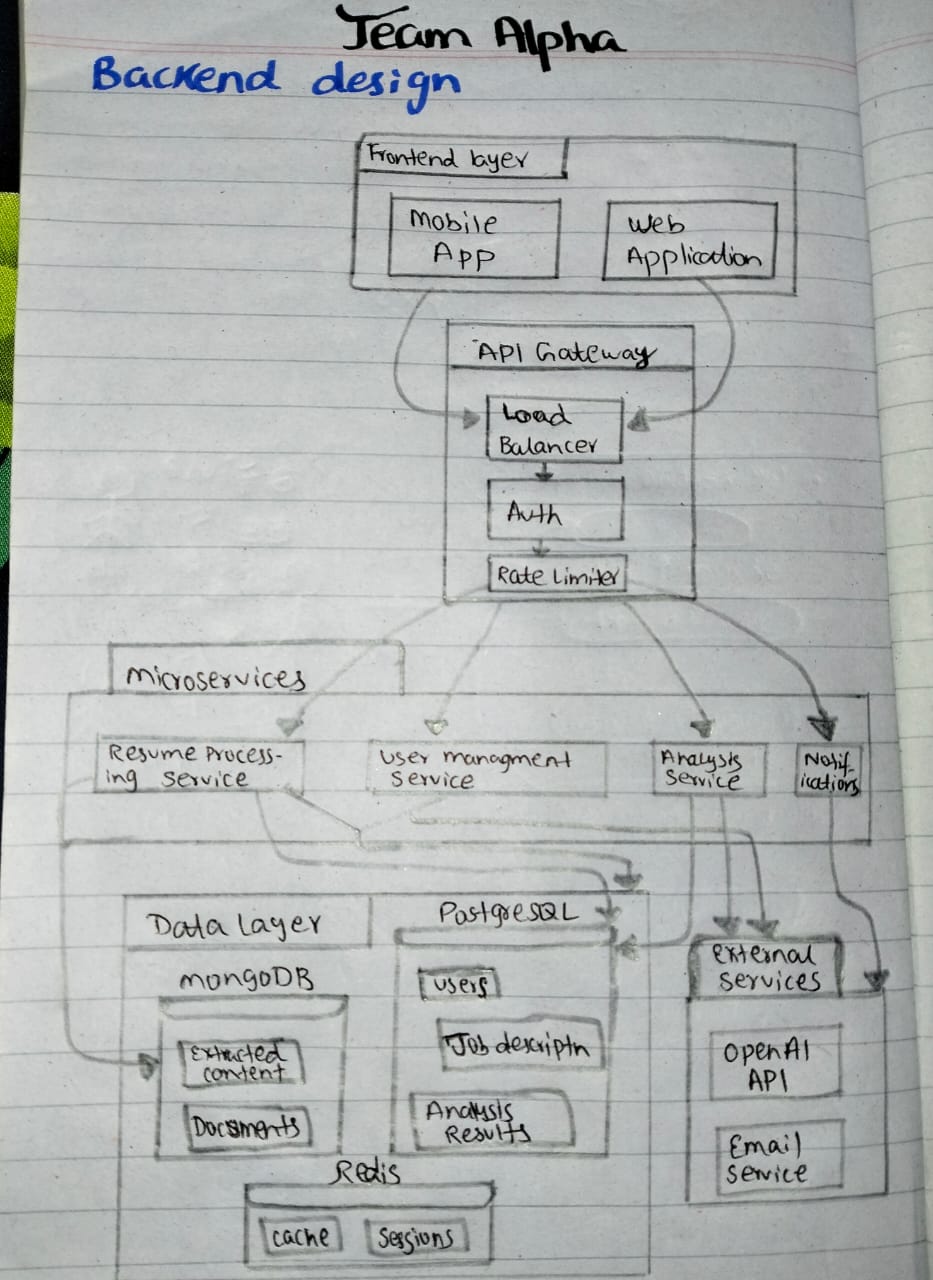 Team Alpha
Backend design
Frontend layer
Mobile
App
Web
Application
API Gateway
Load
Balancer
Auth
Rate Limiter
Microservices
Resume Process-
ing Service
User managment
Service
Analysis
Service
Notif-
ications
Data Layer
PostgreSQL
mongoDB
Users
Job descriptn
Analysis
Results
Extracted
content
Documents
Redis
cache
Sessions
External
Services
OpenAI
API
Email
Service